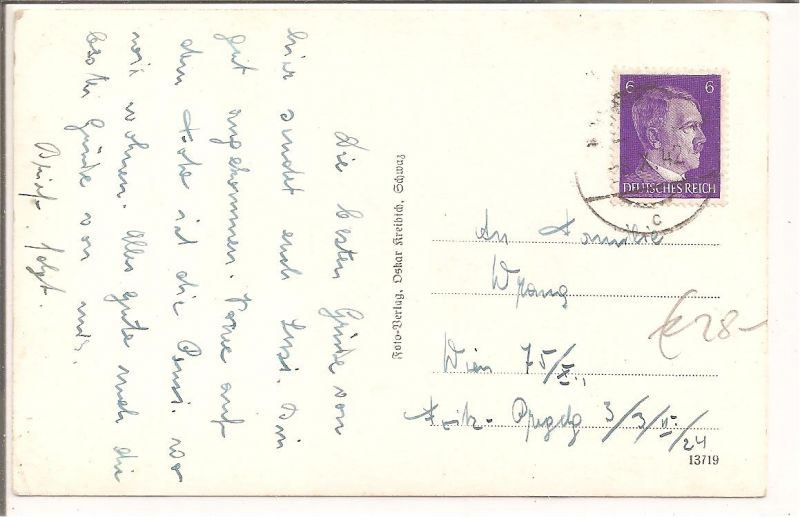 Die besten Grüße von
hier sendet euch Lusi. Bin
gut angekommen. Vorne auf
dem Foto ist die Pens. wo
wir wohnen. Alles gute und die
besten Grüße von mir.
Brief folgt.
Foto-Verlag, Oskar Kreibich, Schwaz
6 6
42
DEUTSCHES REICH
c
An Familie
Wien 75/
3/3/II/24
€ 28-
13719